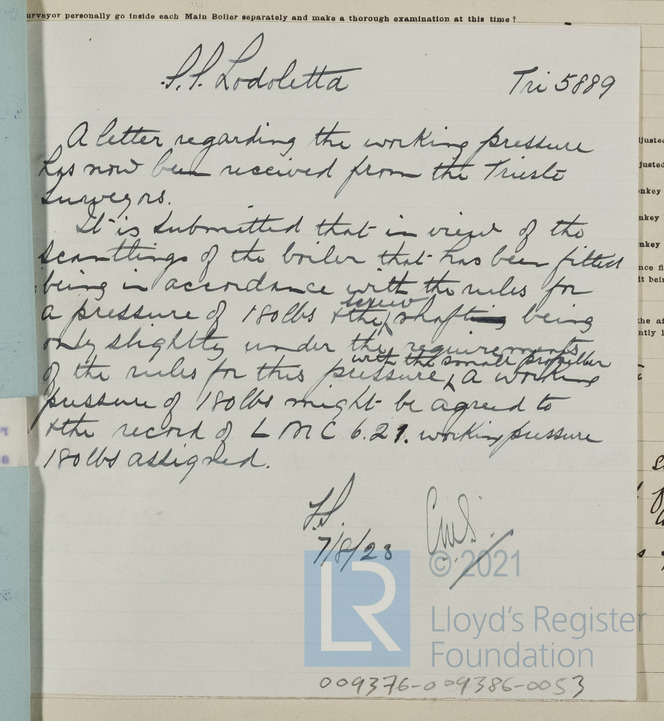 urveyor personally go inside each Main Boiler separately and make a thorough examination at this time?
S.S. Lodoletta Tri 5889
A letter regarding the working pressure
has now been received from the Trieste
Surveyors.
It is submitted that in view of the
scantlings of the boiler that has been fitted
being in accordance with the rules for
a pressure of 180lbs & the screw shaft being
only slightly under the requirements
of the rules for this pressure, with the small propeller a working
pressure of 180lbs might be agreed to
& the record of LMC 6.21. working pressure
180lbs assigned.
7/8/23
© 2021
LR
Lloyd's Register
Foundation
009376-009386-0053